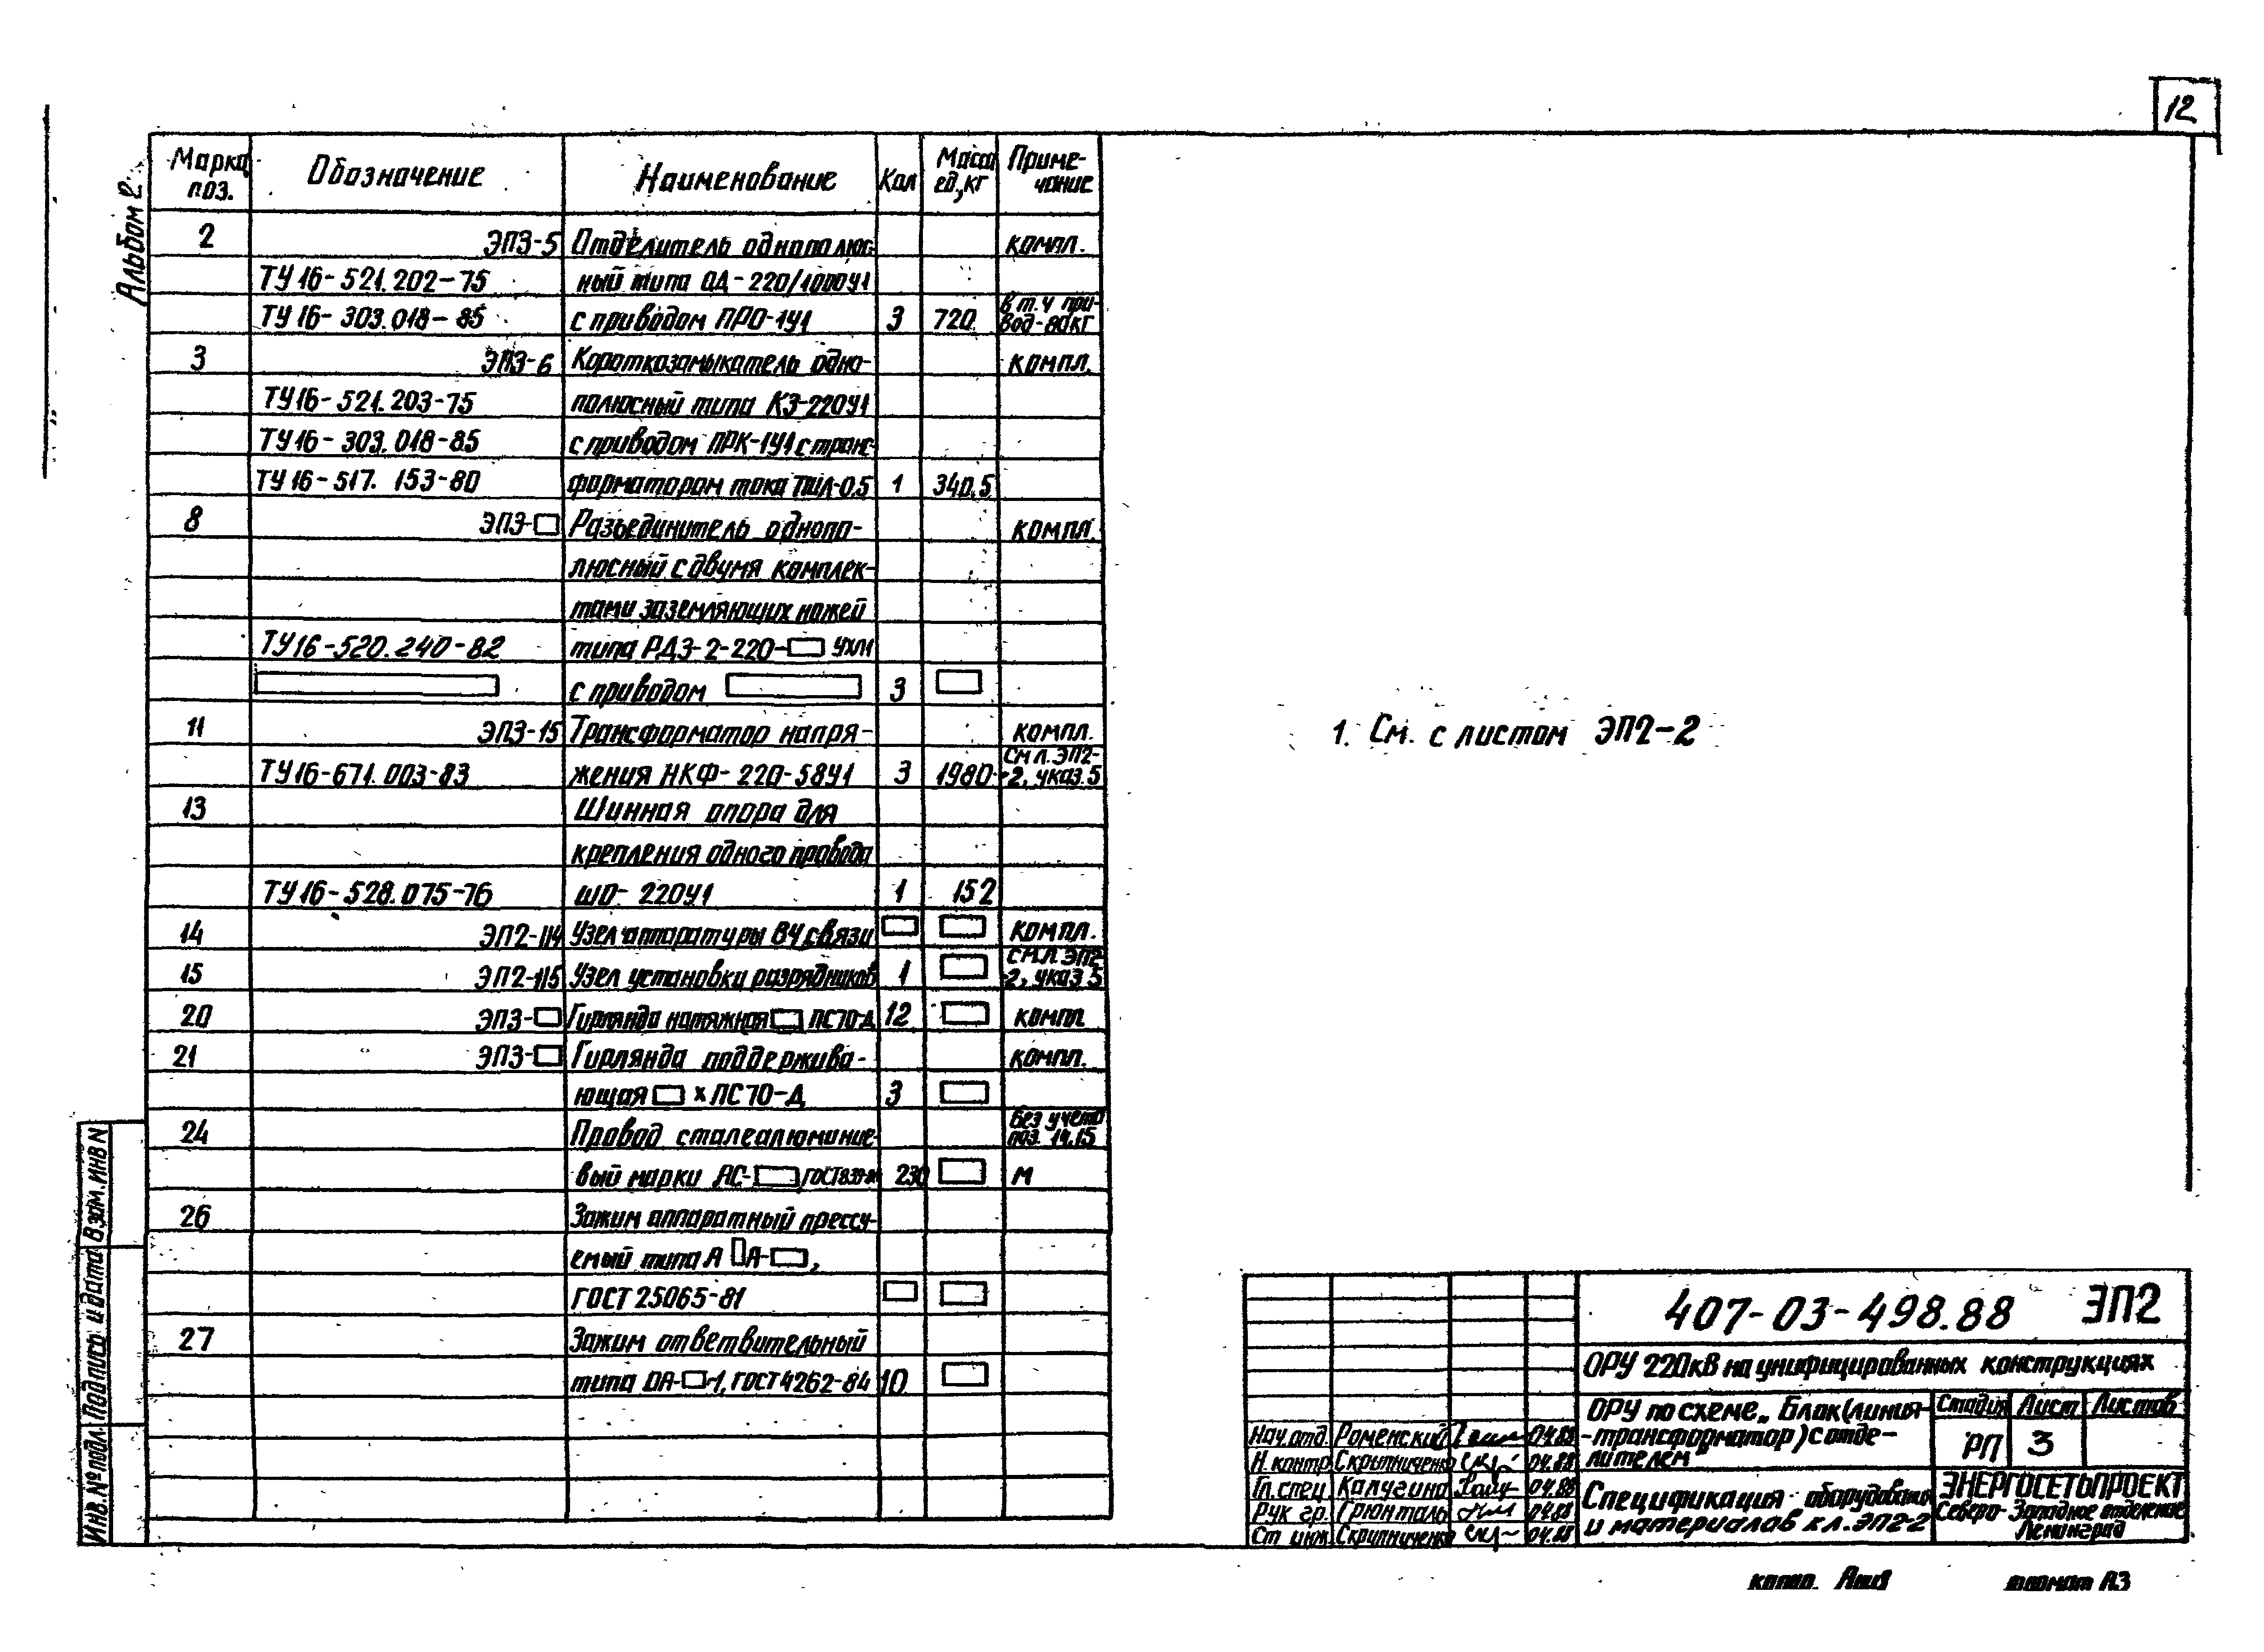 12
Альбом 2
Марка поз. Обозначение Наименование Кол Масса ед.,кг Приме-чание
2 ЭП3-5 Отделитель однополюс- компл.
ТУ16-521.202-75 ный типа ОД-220/1000У1
ТУ16-303.018-85 с приводом ПРО-1У1 3 720 в т.ч при-вод-80кг
3 ЭП3-6 Короткозамыкатель одно- компл.
ТУ16-521.203-75 полюсный типа КЗ-220У1
ТУ16-303.018-85 с приводом ПРК-1У1 с транс-
ТУ16-517.153-80 форматором тока ТШЛ-0.5 1 340.5
8 ЭП3-□ Разъединитель однопо- компл.
люсный с двумя комплек-
тами заземляющих ножей
ТУ16-520.240-82 типа РДЗ-2-220-□ УХЛ1
с приводом □ 3 □
11 ЭП3-15 Трансформатор напря- компл.
ТУ16-671.003-83 жения НКФ-220-58У1 3 1980 См л. ЭП2-2, указ.5
13 Шинная опора для
крепления одного провода
ТУ16-528.075-76 ШО-220У1 1 152
14 ЭП2-114 Узел аппаратуры ВЧ связи □ □ компл.
15 ЭП2-115 Узел установки разрядников 1 □ см.л. ЭП2-2, указ 5
20 ЭП3-□ Гирлянда натяжная □ ПС70-Д 12 □ компл
21 ЭП3-□ Гирлянда поддержива- компл.
ющая □ х ПС70-Д 3 □
24 Провод сталеалюминие- Без учета поз. 14,15
вый марки АС-□ ГОСТ 839- 230 □ м
26 Зажим аппаратный прессу-
емый типа А □А-□,
ГОСТ 25065-81 □ □
27 Зажим ответвительный
типа ОА-□-1, ГОСТ 4262-84 10 □
1. См. с листом ЭП2-2
Инв.№ подл. Подпись и дата Взам.инв N
407-03-498.88 ЭП2
ОРУ 220кВ на унифицированных конструкциях
ОРУ по схеме „Блок (линия-
-трансформатор) с отде-
лителем"
Стадия Лист Листов
РП 3
Нач.отд. Роменский 04.88
Н.контр. Скрипниченко 04.88
Гл.спец Калугина 04.88
Рук гр. Грюнталь 04.88
Ст инж. Скрипниченко 04.88
Спецификация оборудования
и материалов к л. ЭП2-2
ЭНЕРГОСЕТЬПРОЕКТ
Северо-Западное отделение
Ленинград
формат А3